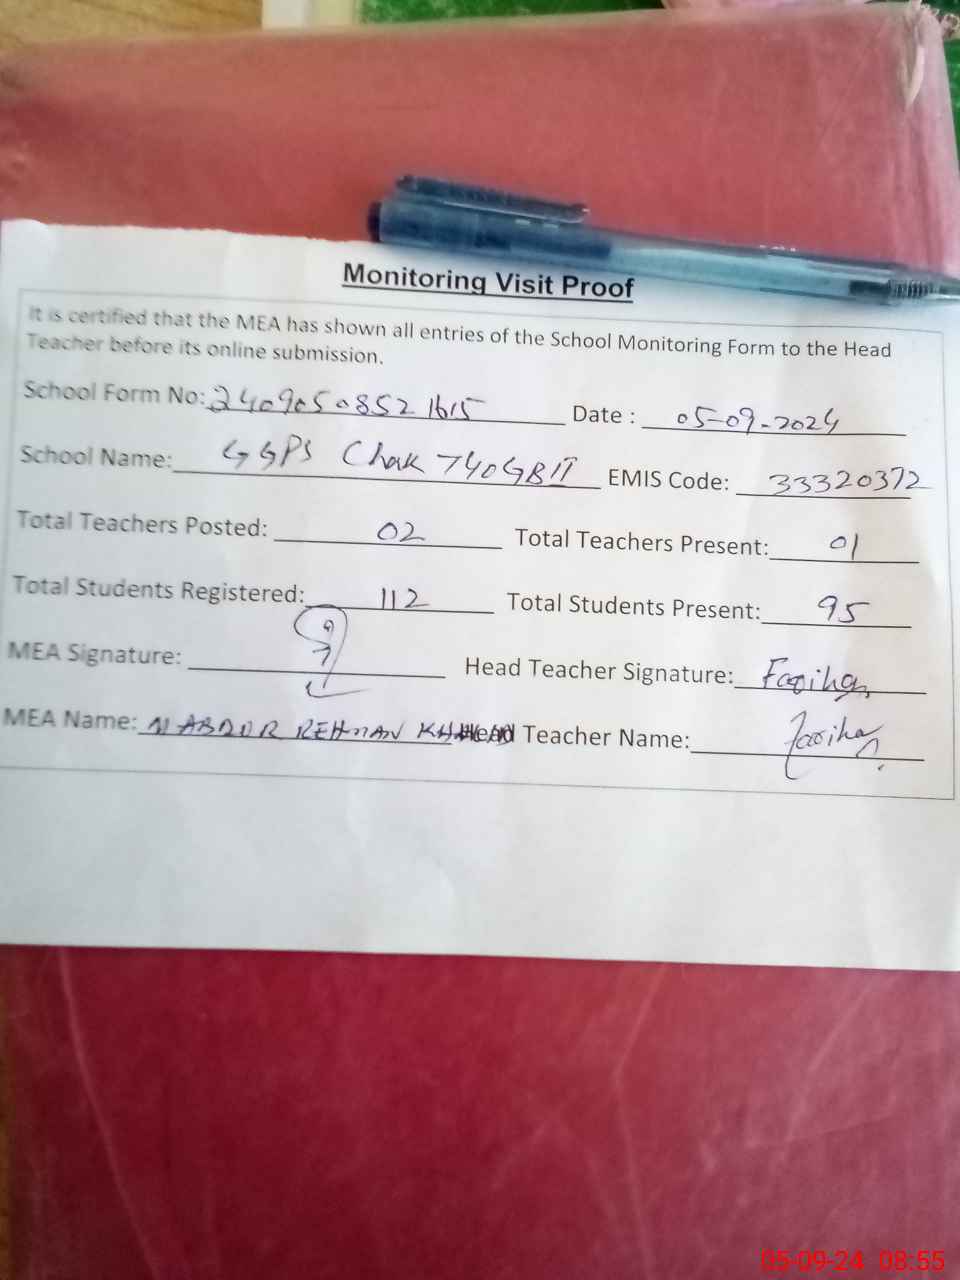 Monitoring Visit Proof
It is certified that the MEA has shown all entries of the School Monitoring Form to the Head
Teacher before its online submission.
School Form No: 2409050852 1615 Date : 05-09-2024
School Name: GGPS Chak 740GB II EMIS Code: 33320372
Total Teachers Posted: 02 Total Teachers Present: 01
Total Students Registered: 112 Total Students Present: 95
MEA Signature: Head Teacher Signature: Fariha
MEA Name: M ABDUR REHMAN KHAN Head Teacher Name: Fariha
05-09-24 08:55